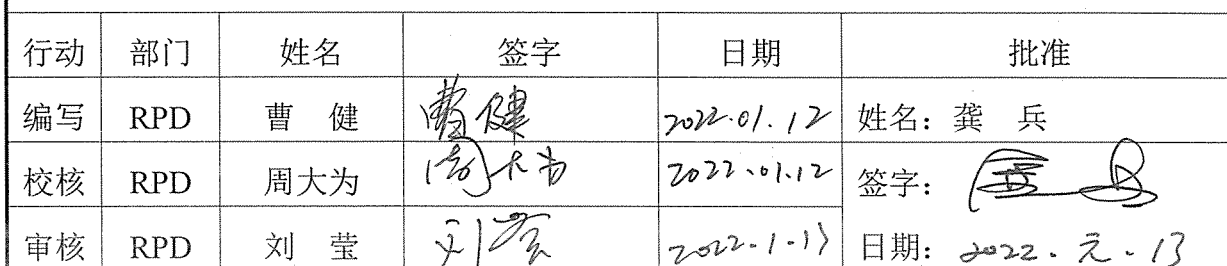 行动 部门 姓名 签字 日期 批准
编写 RPD 曹 健 曹健 2022.01.12 姓名：龚 兵
校核 RPD 周大为 周大为 2022.01.12 签字：
审核 RPD 刘 莹 刘莹 2022.1.13 日期：2022.元.13